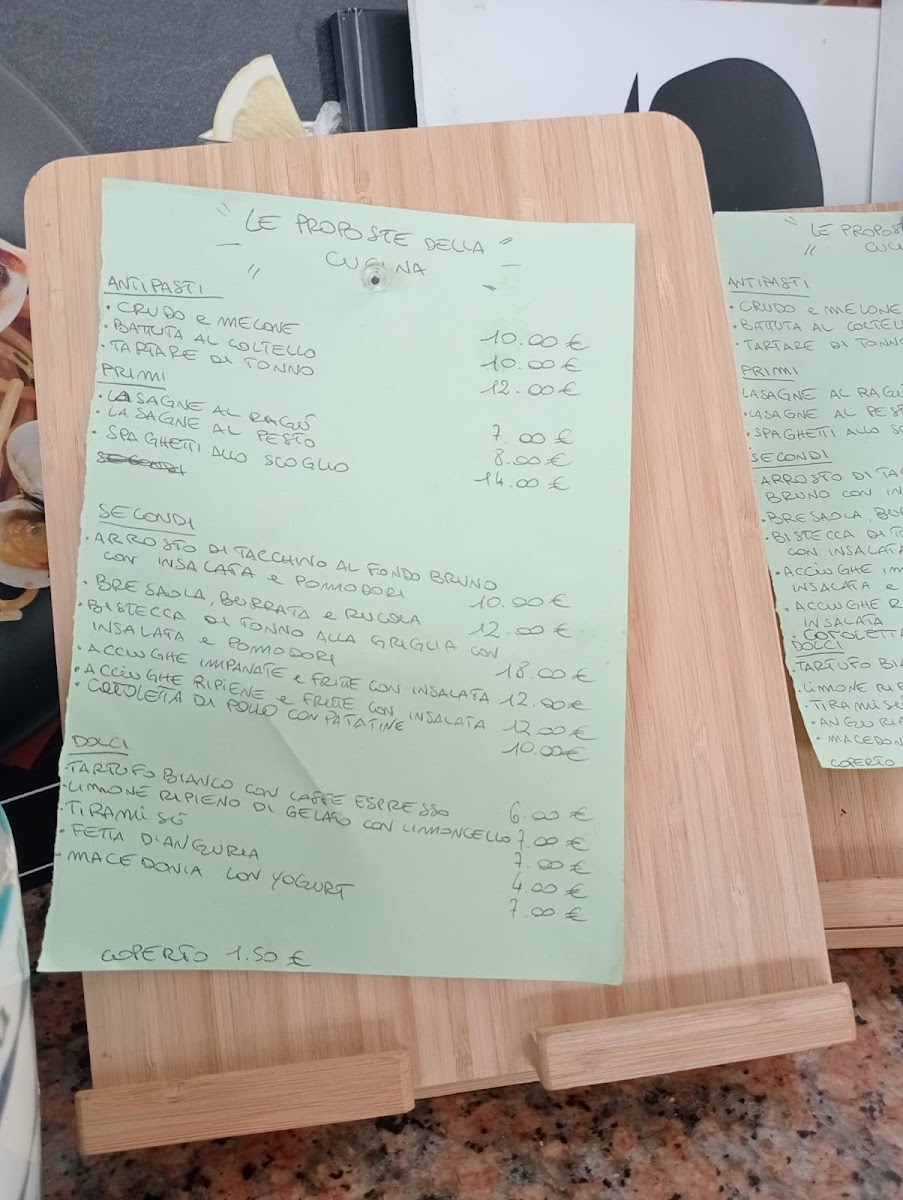 " LE PROPOSTE DELLA "
" CUCINA "
ANTIPASTI
• CRUDO e MELONE 10.00 €
• BATTUTA AL COLTELLO 10.00 €
• TARTARE DI TONNO 12.00 €
PRIMI
• LASAGNE AL RAGÚ 7.00 €
• LASAGNE AL PESTO 8.00 €
• SPAGHETTI ALLO SCOGLIO 14.00 €
SECONDI
• ARROSTO DI TACCHINO AL FONDO BRUNO
CON INSALATA e POMODORI 10.00 €
• BRESAOLA, BURRATA e RUCOLA 12.00 €
• BISTECCA DI TONNO ALLA GRIGLIA CON
INSALATA e POMODORI 18.00 €
• ACCIUGHE IMPANATE e FRITTE CON INSALATA 12.00 €
• ACCIUGHE RIPIENE e FRITTE CON INSALATA 12.00 €
• COTOLETTA DI POLLO CON PATATINE 10.00 €
DOLCI
• TARTUFO BIANCO CON CAFFE ESPRESSO 6.00 €
• LIMONE RIPIENO DI GELATO CON LIMONCELLO 7.00 €
• TIRAMISÚ 7.00 €
• FETTA D'ANGURIA 4.00 €
• MACEDONIA CON YOGURT 7.00 €
COPERTO 1.50 €
" LE PROPOS
"
ANTIPASTI
• CRUDO e MELONE
• BATTUTA AL COLTEL
• TARTARE DI TONN
PRIMI
LASAGNE AL RAGÚ
• LASAGNE AL PES
• SPAGHETTI ALLO S
SECONDI
• ARROSTO DI TA
BRUNO CON IN
• BRESAOLA, BU
• BISTECCA DI T
CON INSALATA
• ACCIUGHE IM
INSALATA e
• ACCIUGHE R
INSALATA
• COTOLETTA
DOLCI
• TARTUFO BIA
• LIMONE RIP
• TIRAMISÚ
• ANGURIA
• MACEDON
COPERTO